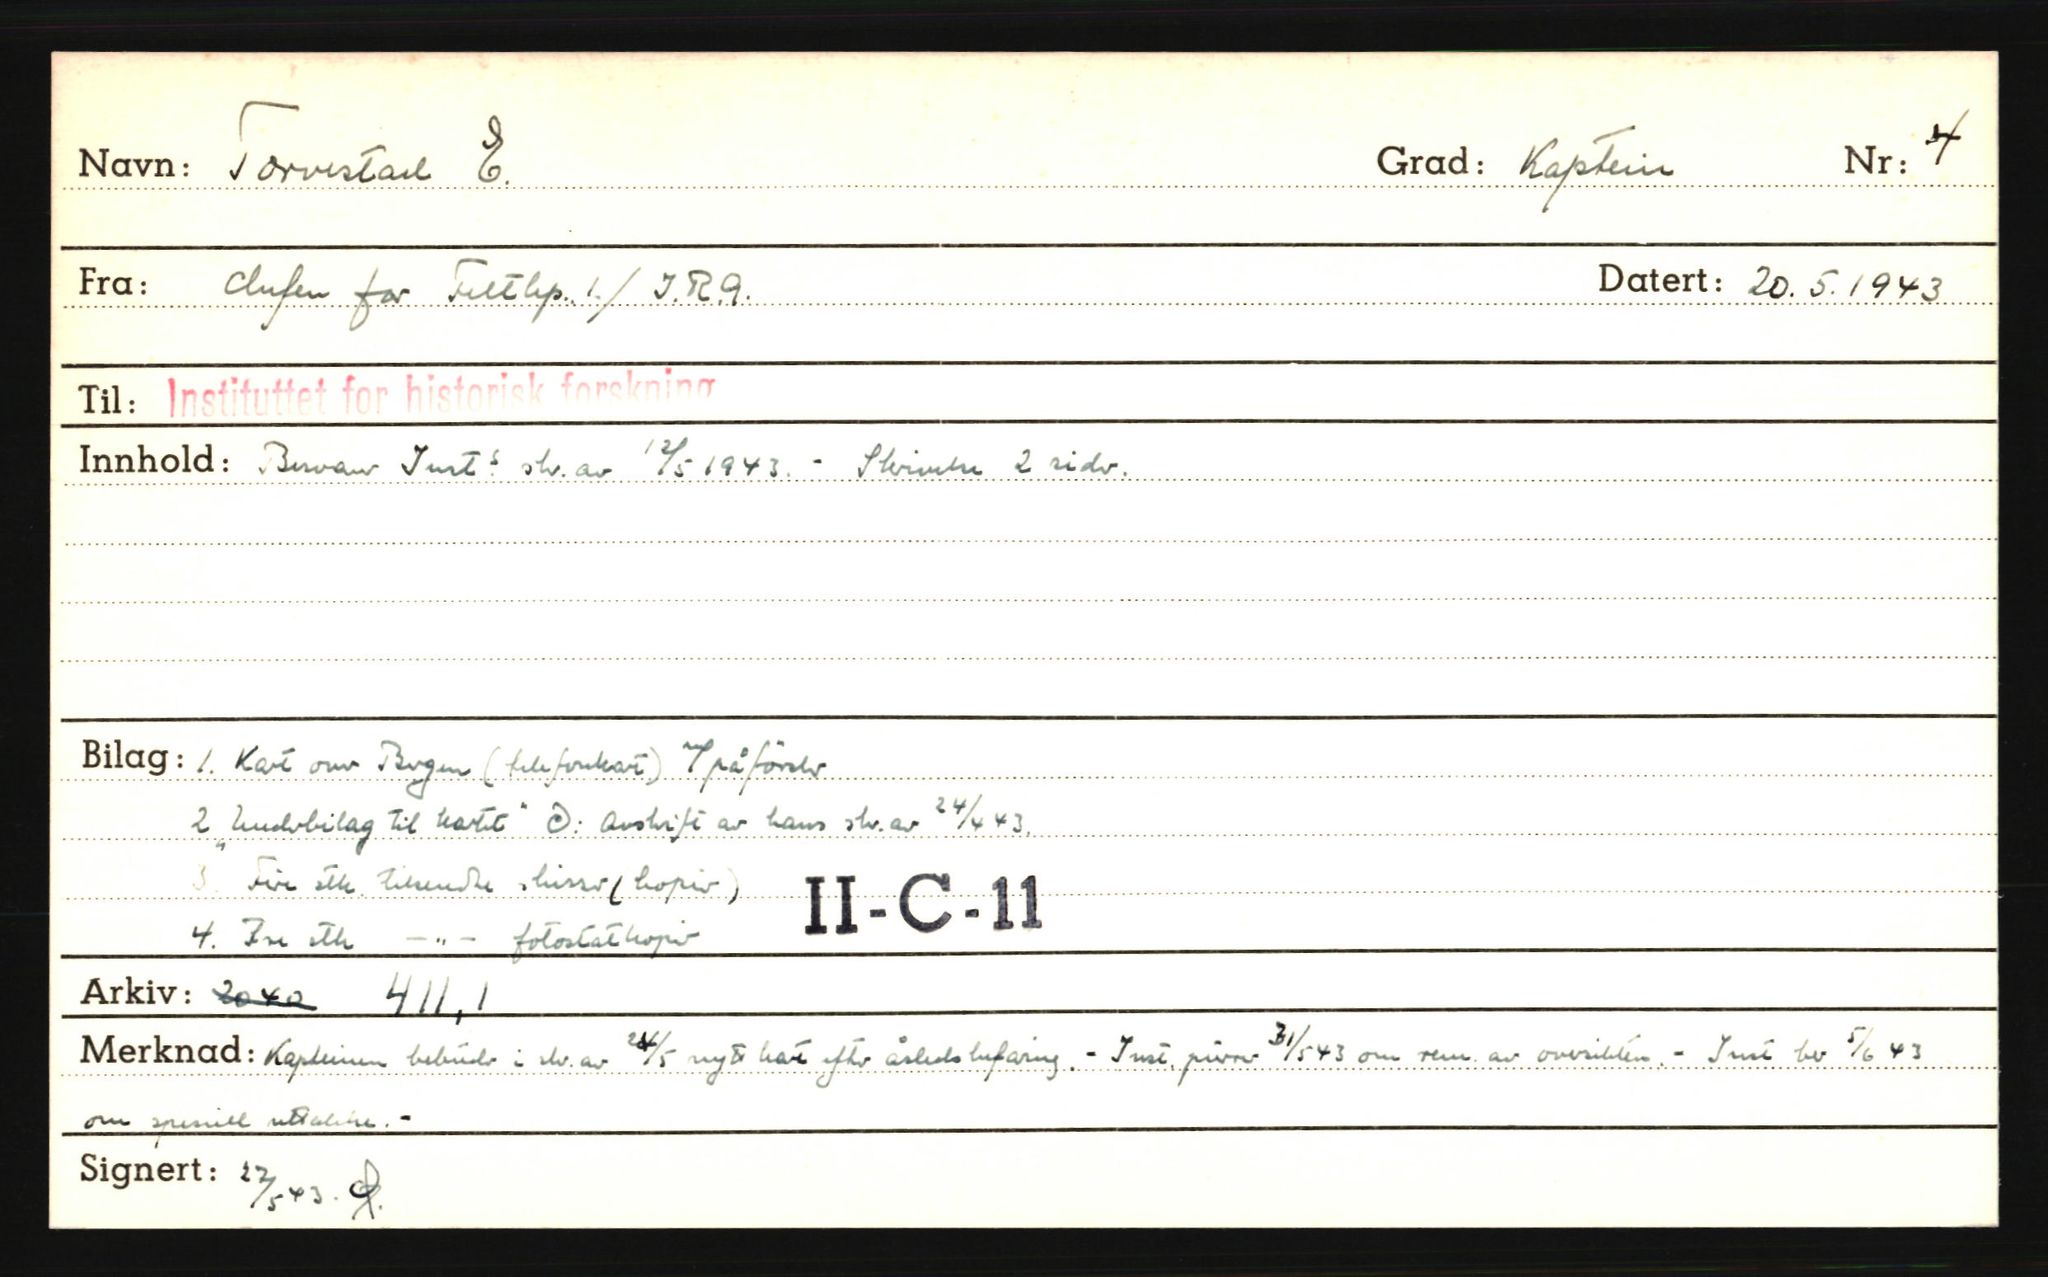 Navn: Torvestad E. Grad: Kaptein Nr: 4
Fra: Chefen for Feltkp. 1./ I.R.9. Datert: 20.5.1943
Til: Instituttet for historisk forskning
Innhold: Besvarer Inst.s skr. av 12/5 1943. - Skrivelse 2 sider.
Bilag: 1. Kart over Bergen (telefonkart) m/påförsler
2 "Underbilag til kartet" Ɔ: Avskrift av hans skr. av 24/4 43.
3. Fire stk. tilsendte skisser (kopier)
4. Fire stk -"- fotostatkopier
II-C-11
Arkiv: 2040 411,1
Merknad: Kapteinen bebuder i skr. av 24/5 nytt kart efter åstedsbefaring. - Inst. purrer 31/5 43 om rem. av oversikten. - Inst ber 5/6 43
om spesiell uttalelse. -
Signert: 27/5 43.